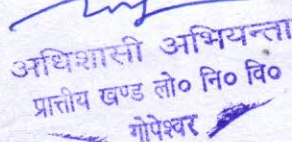 अधिशासी अभियन्ता
प्रान्तीय खण्ड लो० नि० वि०
गोपेश्वर